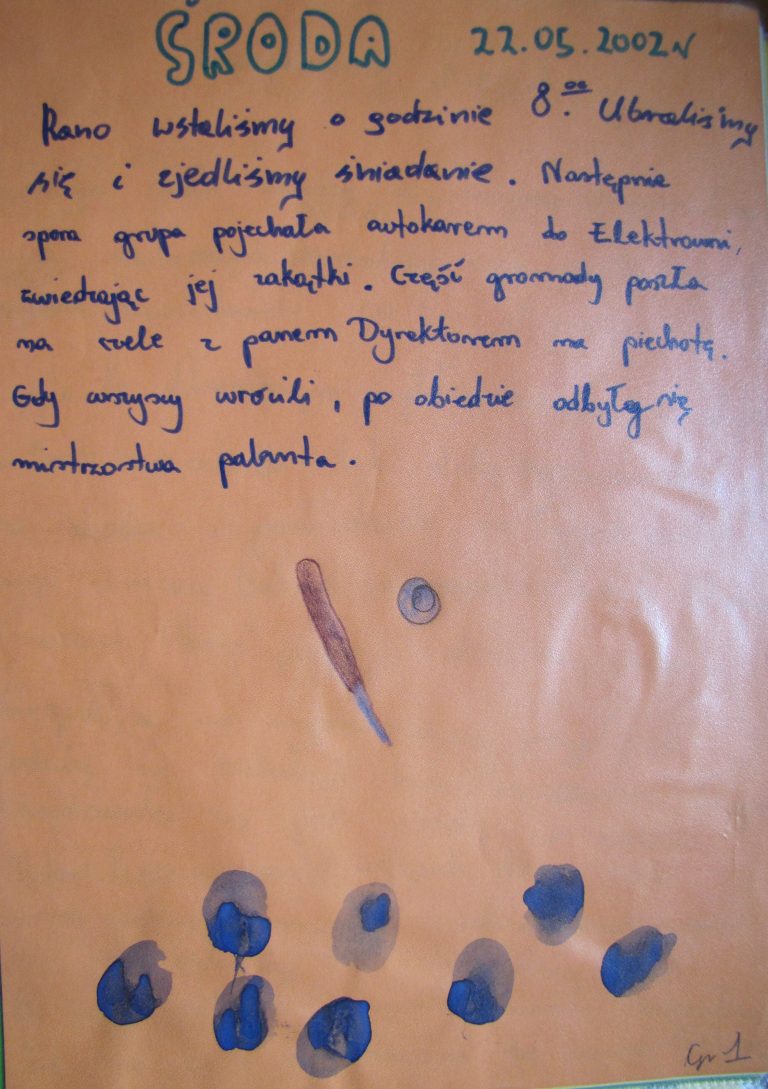 ŚRODA 22.05.2002r
Rano wstaliśmy o godzinie 8.00 Ubraliśmy
się i zjedliśmy śniadanie. Następnie
spora grupa pojechała autokarem do Elektrowni,
zwiedzając jej zakątki. Część gromady poszła
na cele z panem Dyrektorem na piechotę.
Gdy wszyscy wrócili, po obiedzie odbyły się
mistrzostwa palanta.
Gr 1